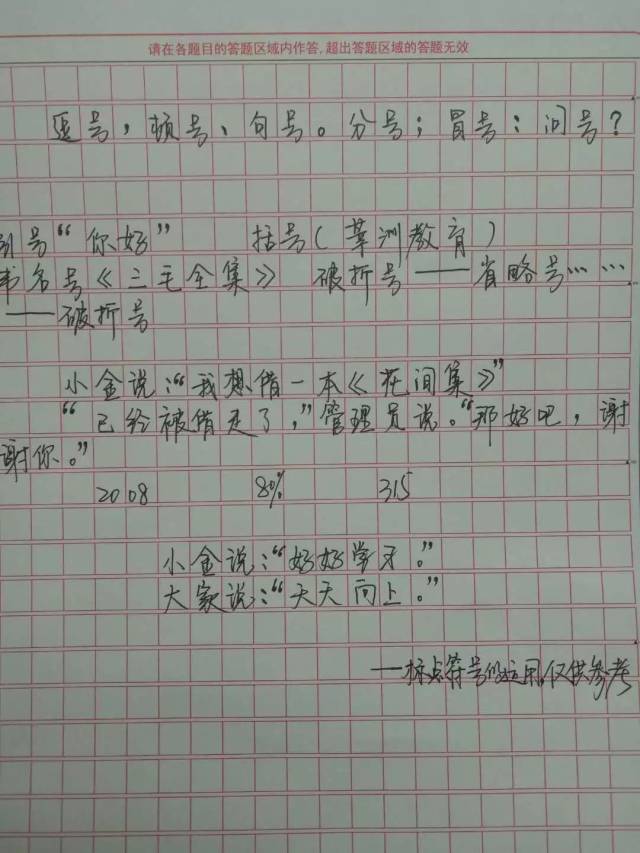 请在各题目的答题区域内作答,超出答题区域的答题无效
逗号，顿号、句号。分号；冒号：问号？
引号“你好” 括号(莘洲教育)
书名号《三毛全集》 破折号——省略号……
——破折号
小金说：“我想借一本《花间集》”
“已经被借走了，”管理员说。“那好吧，谢
谢你。”
2008 80% 315
小金说：“好好学习。”
大家说：“天天向上。”
—标点符号的运用,仅供参考